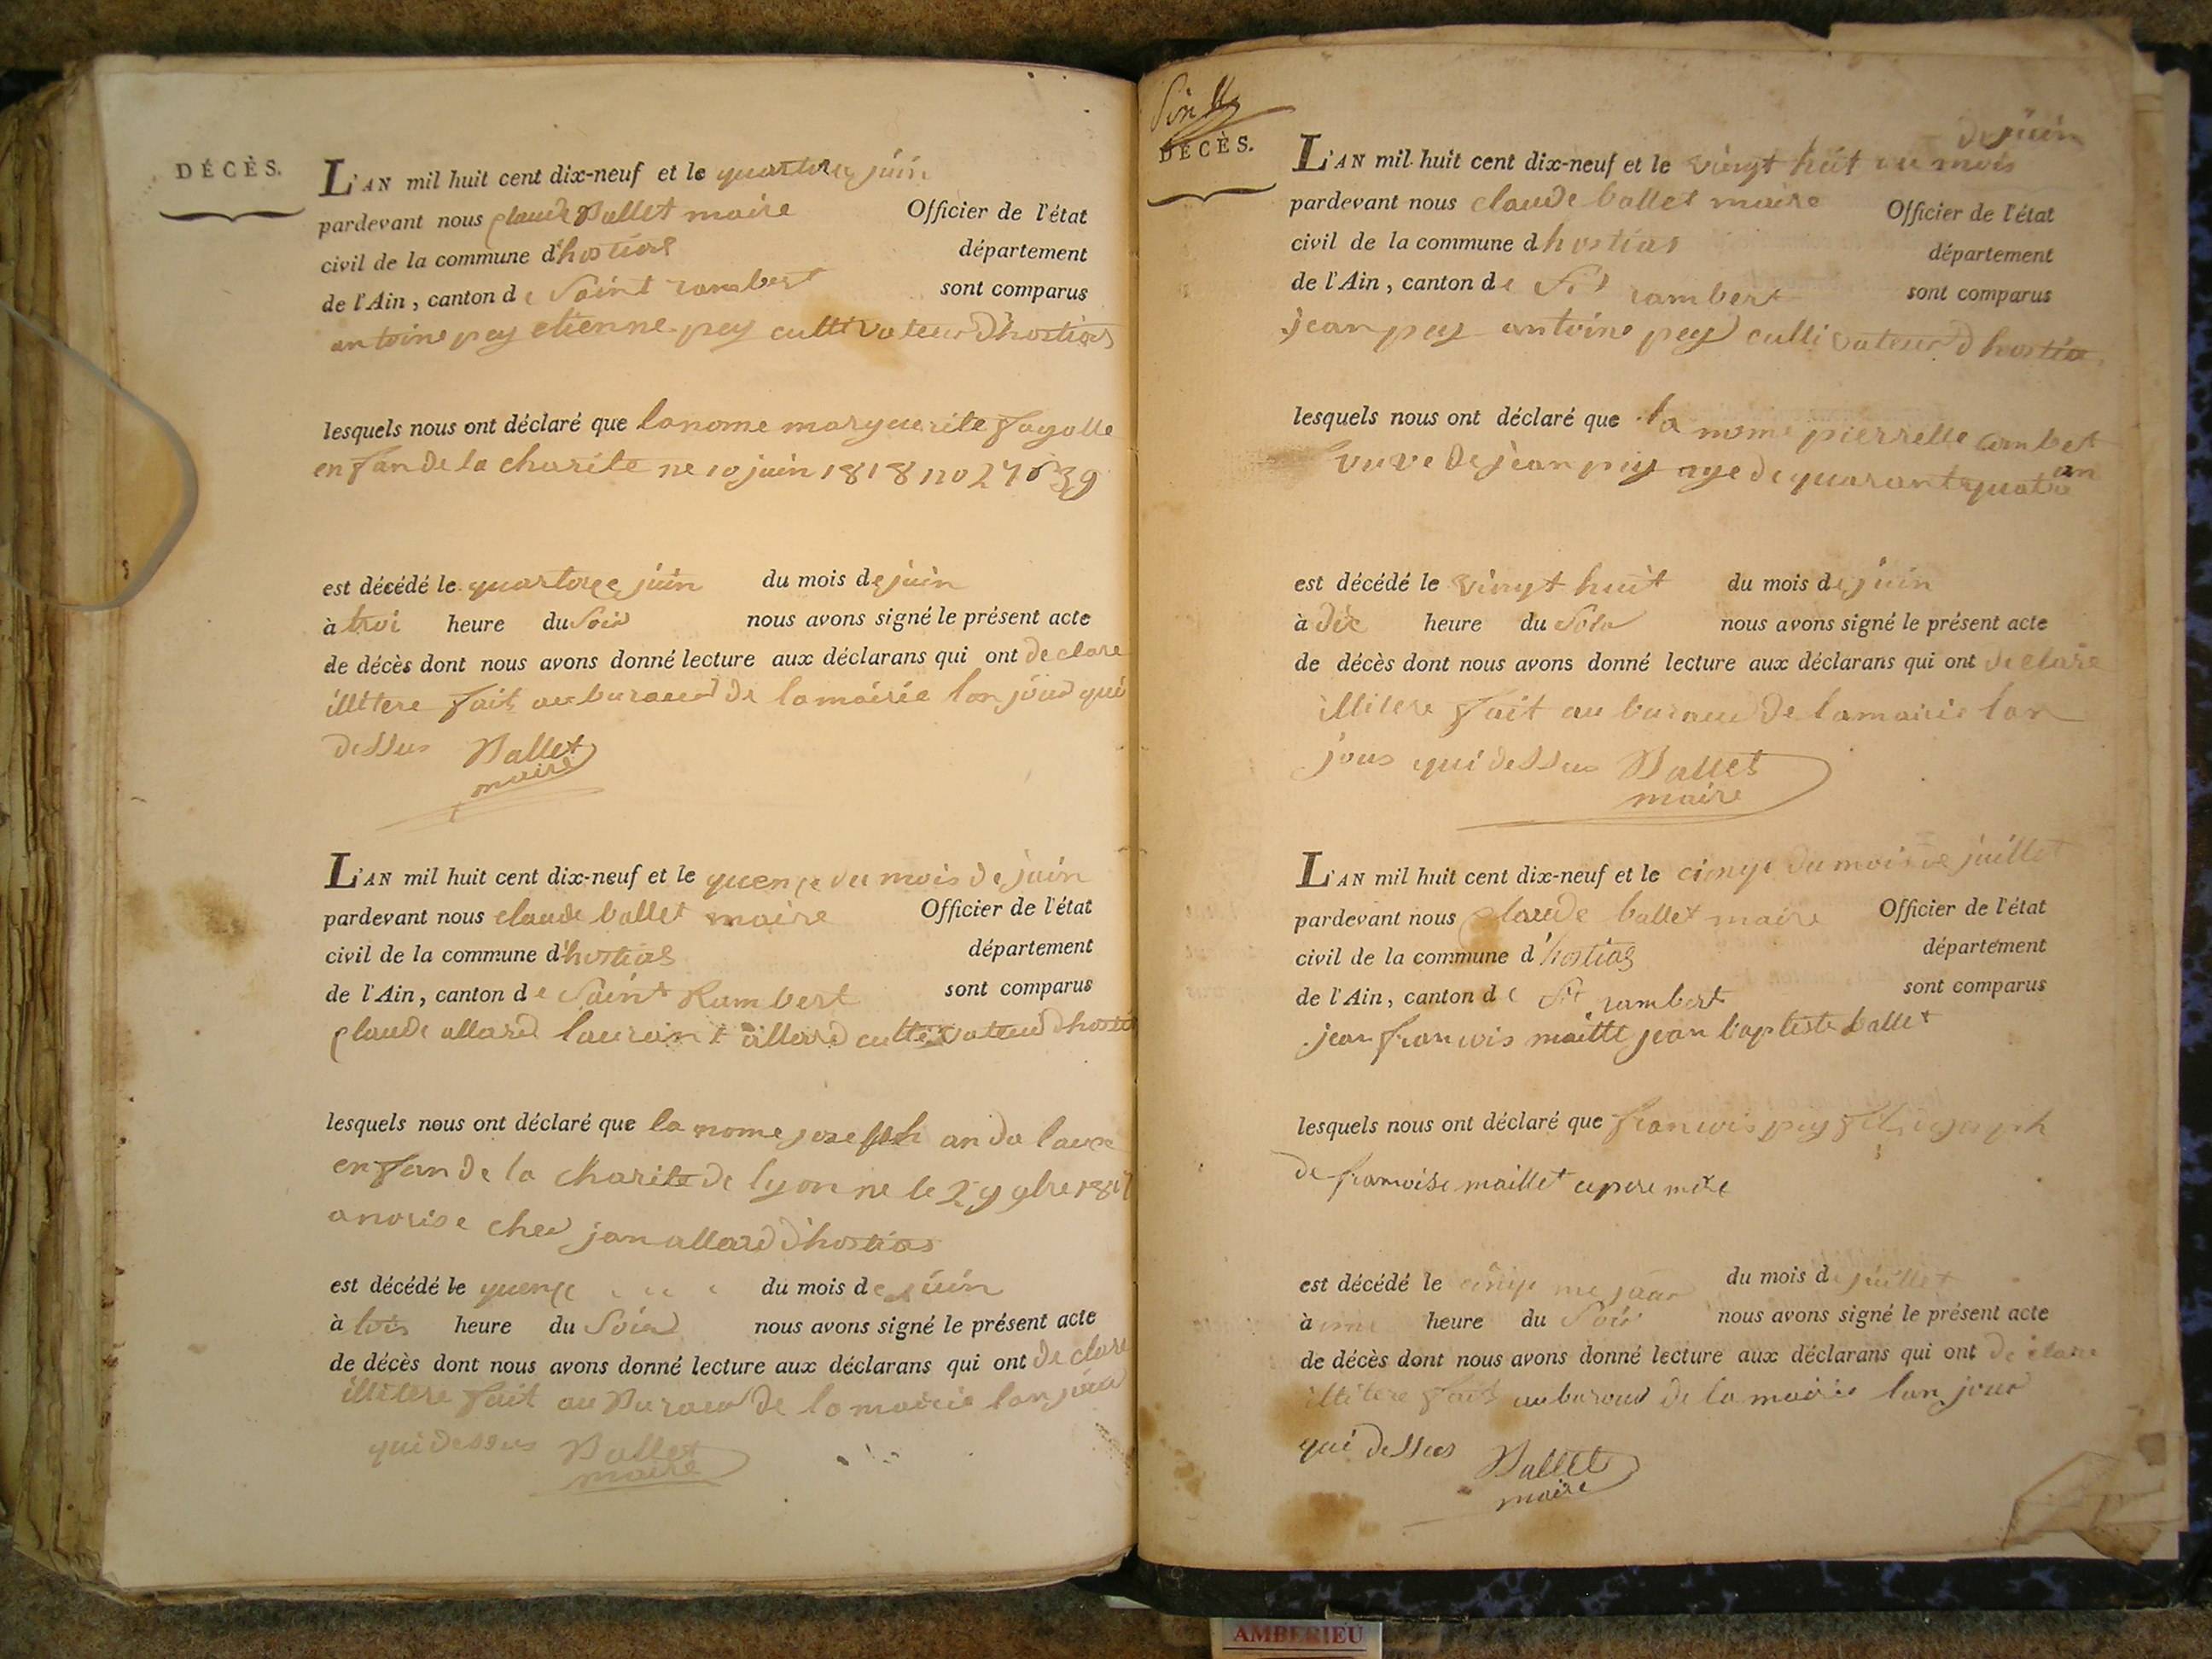 DÉCÈS.
L'AN mil huit cent dix-neuf et le quartorze juin
pardevant nous claude Ballet maire Officier de l'état
civil de la commune d'hostias département
de l'Ain, canton de Saint rambert sont comparus
antoine pey etienne pey cultivateur d'hostias
lesquels nous ont déclaré que la nome marguerite fayolle
enfan de la charite ne 10 juin 1818 no 27639
est décédé le quartorze juin du mois de juin
à troi heure du Soir nous avons signé le présent acte
de décès dont nous avons donné lecture aux déclarans qui ont declare
illitere fait au bureau de la mairie lan jour qui
dessus Ballet
maire
L'AN mil huit cent dix-neuf et le quenze du mois de juin
pardevant nous claude ballet maire Officier de l'état
civil de la commune d'hostias département
de l'Ain, canton de Saint Rambert sont comparus
claude allard laurant allard cultivateur d'hostias
lesquels nous ont déclaré que la nome joseph
enfan de la charite de lyon ne le 29 9bre
anorise ched jan allard d'hostias
est décédé le quenze du mois de juin
à heure du Soir nous avons signé le présent acte
de décès dont nous avons donné lecture aux déclarans qui ont declare
illitere fait au Bureau de la mairie lan jour
qui dessus Ballet
maire
DÉCÈS.
de juin
L'AN mil huit cent dix-neuf et le vingt huit du mois
pardevant nous claude ballet maire Officier de l'état
civil de la commune dhostias département
de l'Ain, canton de St rambert sont comparus
jean pey antoine pey cultivateur dhostias
lesquels nous ont déclaré que la nome pierrette
vuve de jean pey age de quarant quatre an
est décédé le vingt huit du mois de juin
à dix heure du Soir nous avons signé le présent acte
de décès dont nous avons donné lecture aux déclarans qui ont declare
illitere fait au bureau de la mairie lan
jour qui dessus Ballet
maire
L'AN mil huit cent dix-neuf et le cinqe du mois de juillet
pardevant nous claude ballet maire Officier de l'état
civil de la commune d'hostias département
de l'Ain, canton de St rambert sont comparus
jean francois maitte jean baptiste ballet
lesquels nous ont déclaré que francois pey
de francoise maillet
est décédé le cinqe du mois de juillet
à heure du Soir nous avons signé le présent acte
de décès dont nous avons donné lecture aux déclarans qui ont declare
illitere fait au bureau de la mairie lan jour
qui dessus Ballet
maire
AMBERIEU